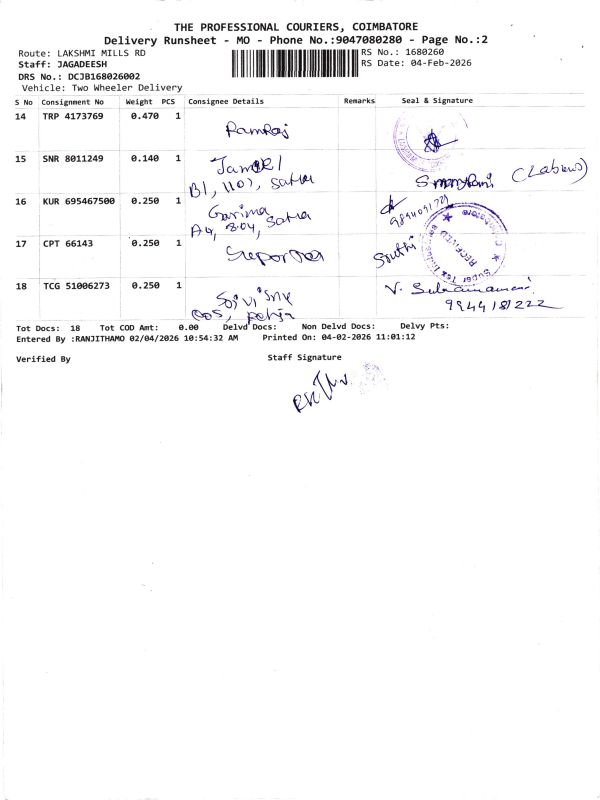 THE PROFESSIONAL COURIERS, COIMBATORE
Delivery Runsheet - MO - Phone No.:9047080280 - Page No.:2
Route: LAKSHMI MILLS RD
RS No.: 1680260
Staff: JAGADEESH
RS Date: 04-Feb-2026
DRS No.: DCJB168026002
Vehicle: Two Wheeler Delivery
S No Consignment No Weight PCS Consignee Details Remarks Seal & Signature
14 TRP 4173769 0.470 1
Ramraj
15 SNR 8011249 0.140 1
B1, 1107, Satya
(Labeus)
16 KUR 695467500 0.250 1
Garima
A4, 804, Satya
9894091721
17 CPT 66143 0.250 1
Sruthi
RECEIVED
18 TCG 51006273 0.250 1
V. Subramanani
9944181222
Tot Docs: 18 Tot COD Amt: 0.00 Delvd Docs: Non Delvd Docs: Delvy Pts:
Entered By :RANJITHAMO 02/04/2026 10:54:32 AM Printed On: 04-02-2026 11:01:12
Verified By Staff Signature